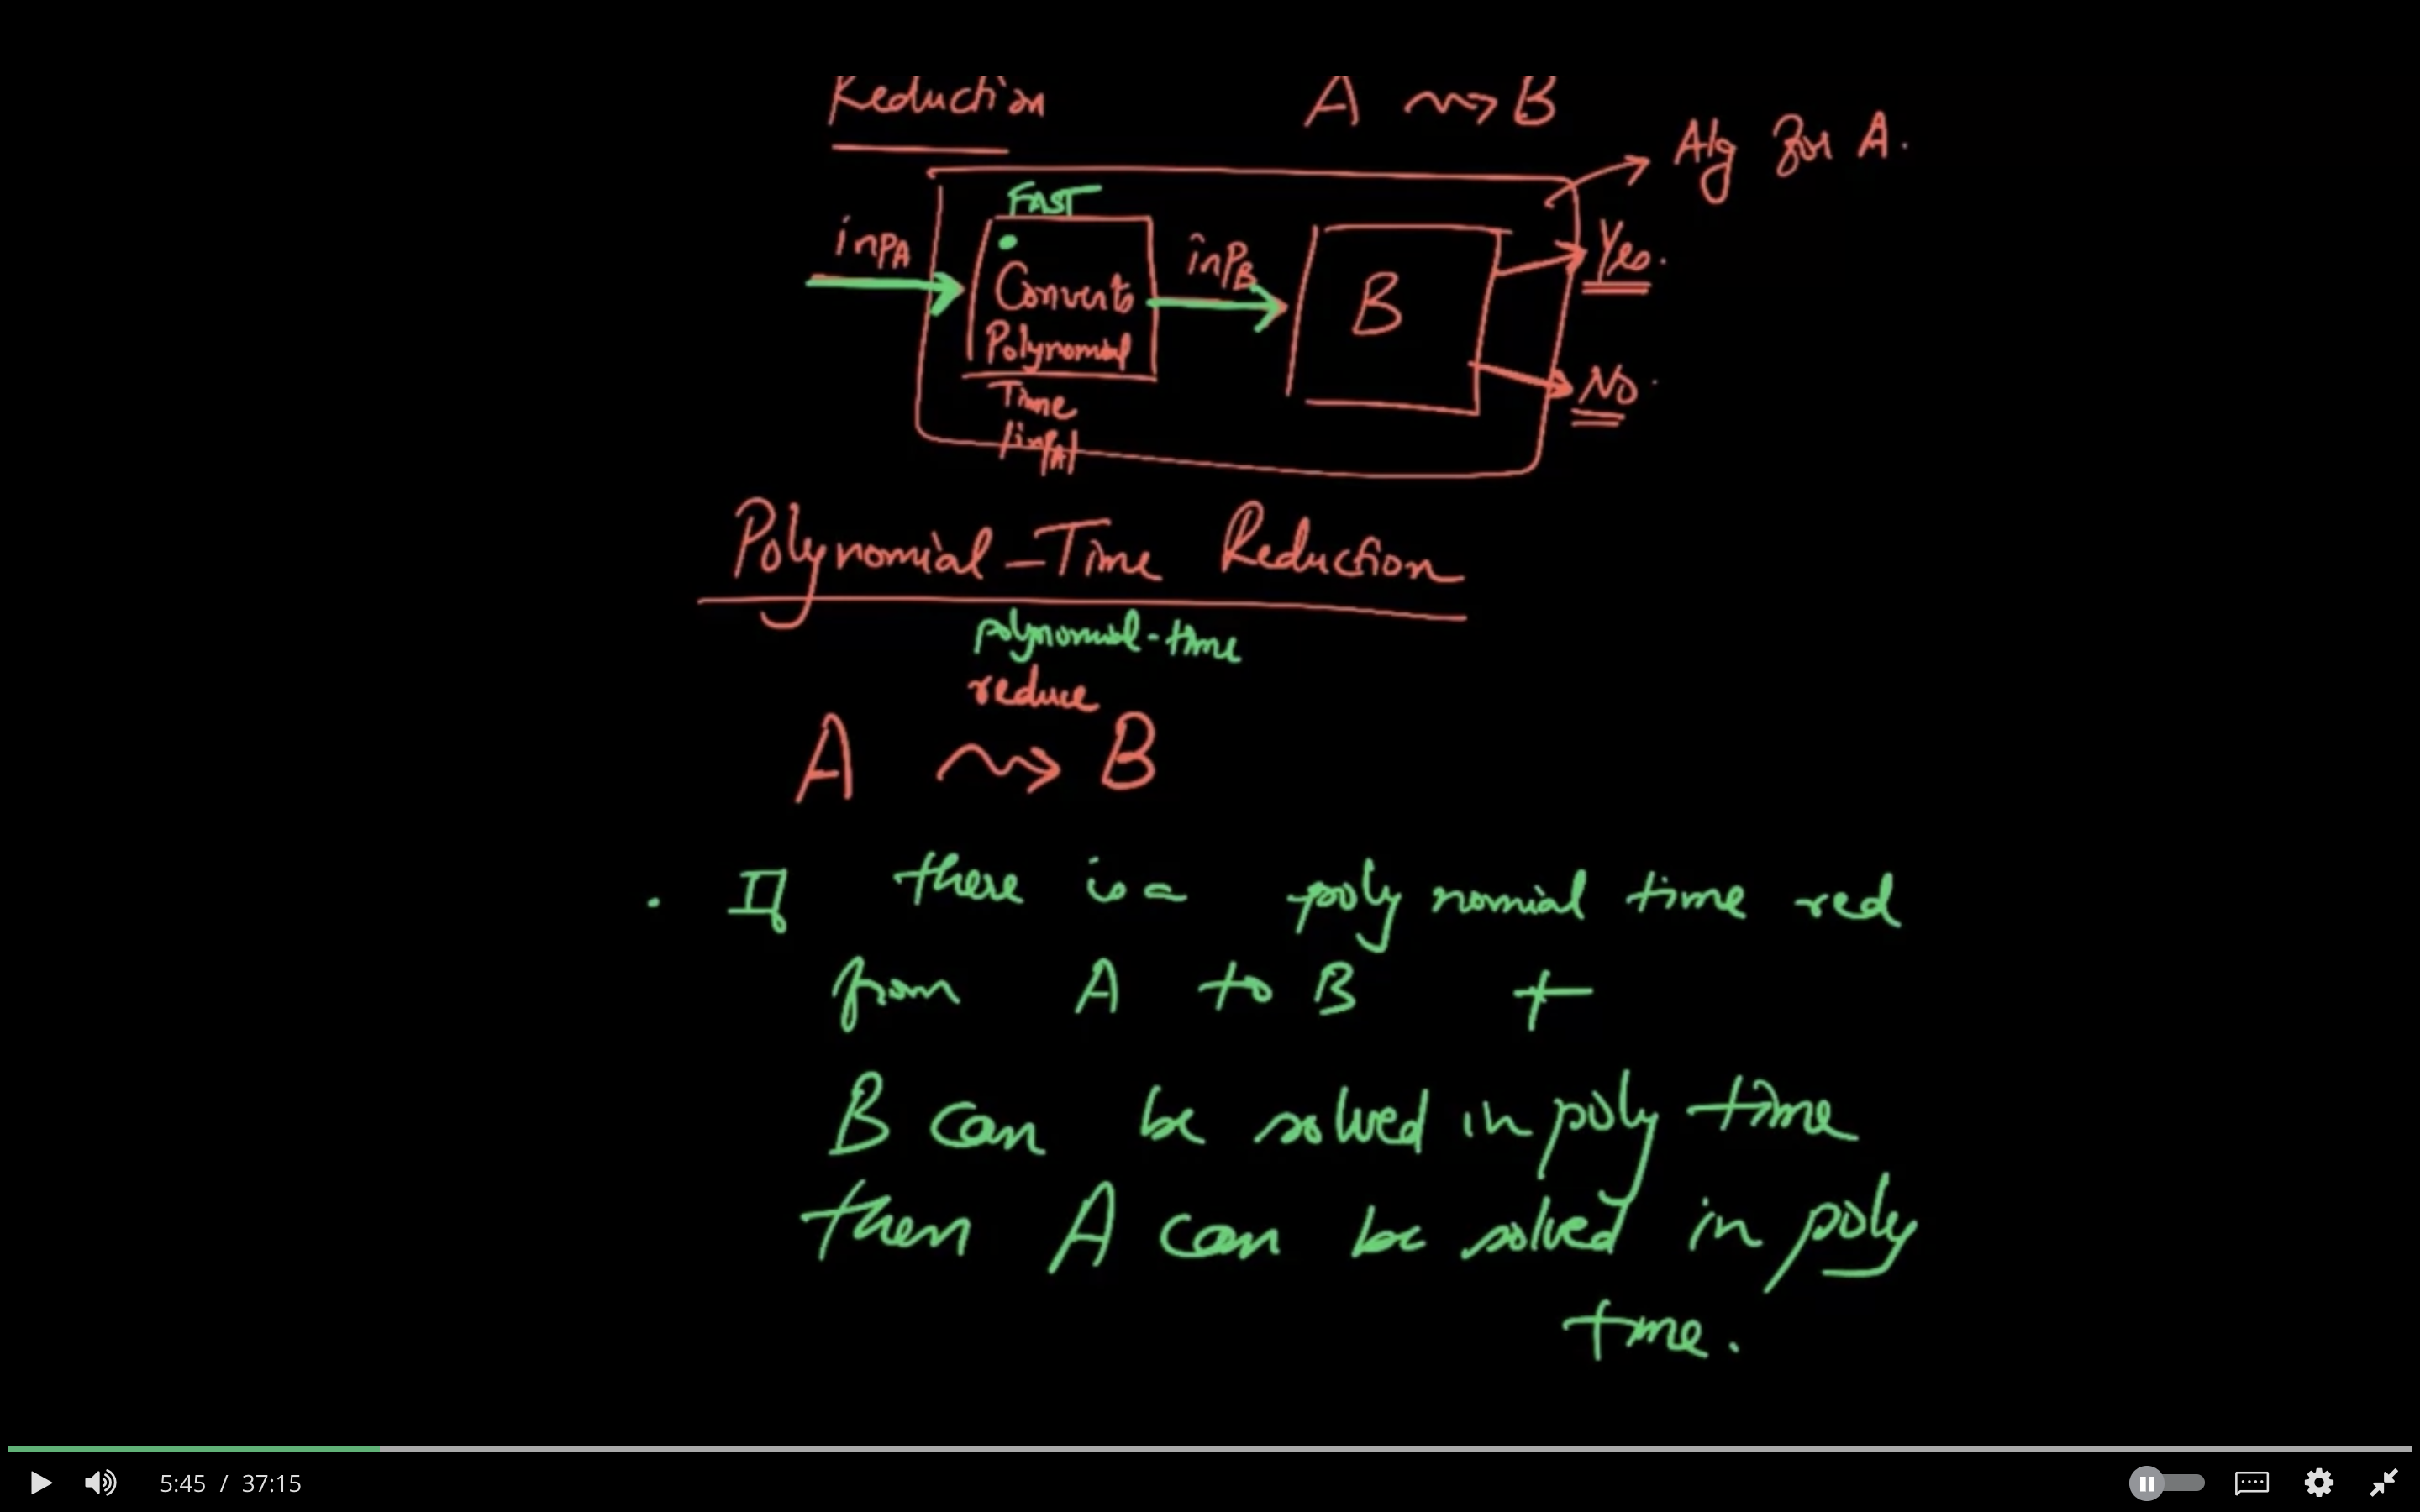 Reduction A ⇝ B
Alg for A.
FAST
inpA
Converts
Polynomial
Time
|inpA|
inpB
B
Yes.
No.
Polynomial-Time Reduction
polynomial-time
reduce
A ⇝ B
. If there is a polynomial time red
from A to B +
B can be solved in poly time
then A can be solved in poly
time.
5:45 / 37:15